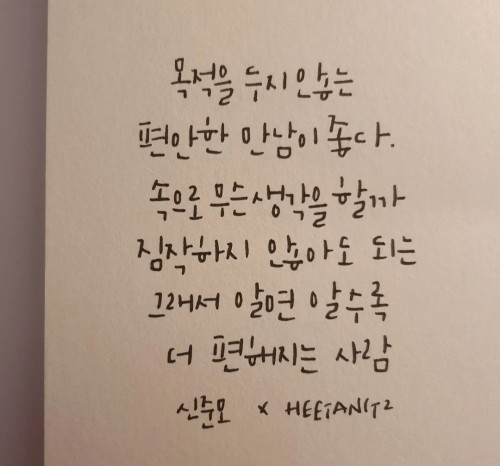 목적을 두지 않는
편안한 만남이 좋다.
속으로 무슨생각을 할까
짐작하지 않아도 되는
그래서 알면 알수록
더 편해지는 사람
신준모 x HEETANIT2